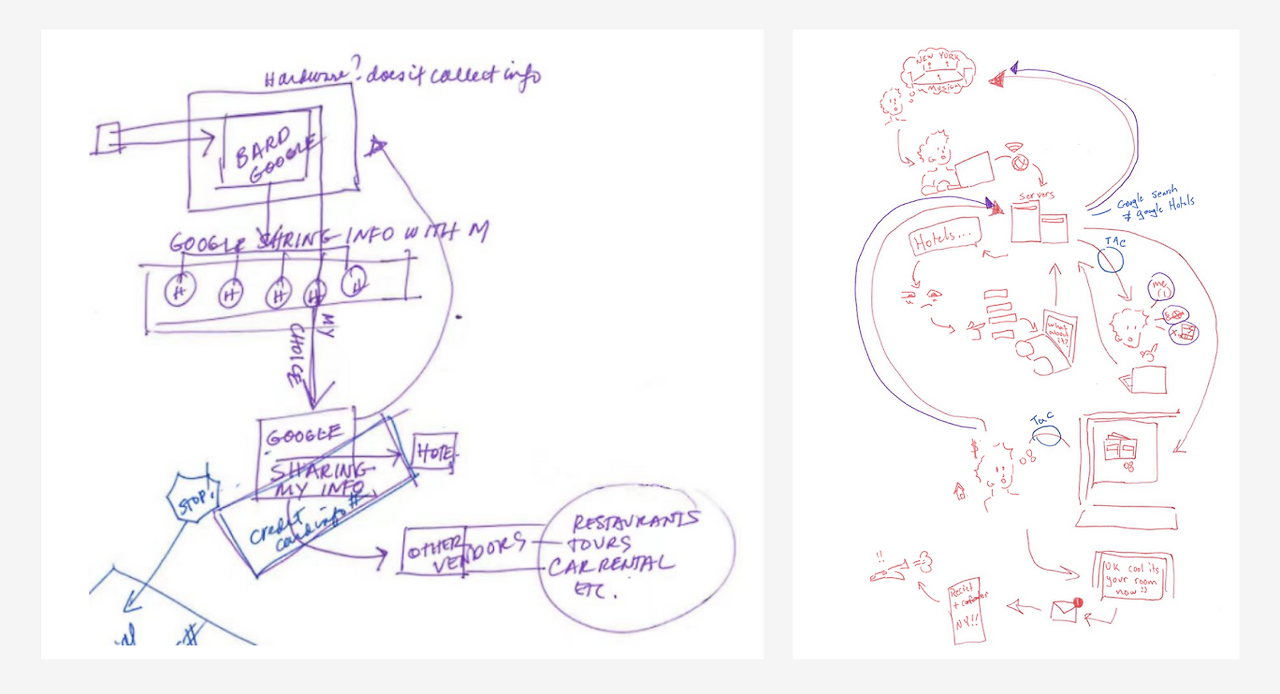 Hardware? does it collect info
BARD
GOOGLE
GOOGLE SHRING INFO WITH M
H H H H H
MY
CHOICE
GOOGLE
SHARING
MY INFO
HOTE
STOP!
credit
card info #
OTHER
VENDORS
RESTAURANTS
TOURS
CAR RENTAL
ETC.
#
NEW YORK
MUSEUM
Servers
Google Search
& Google Hotels
Hotels...
TAC
me
what
about
it?
TAC
$
OK cool its
your room
now :)
!!
+
NY!!